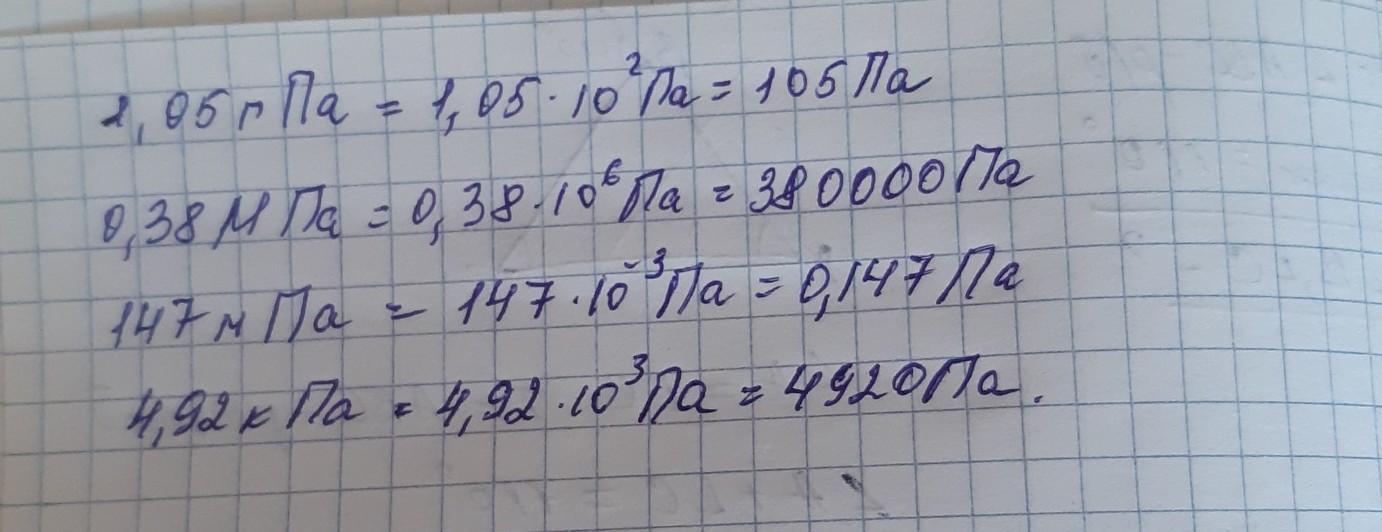 1,05 гПа = 1,05 · 10² Па = 105 Па
0,38 МПа = 0,38 · 10⁶ Па = 380000 Па
147 мПа = 147 · 10⁻³ Па = 0,147 Па
4,92 кПа = 4,92 · 10³ Па = 4920 Па.